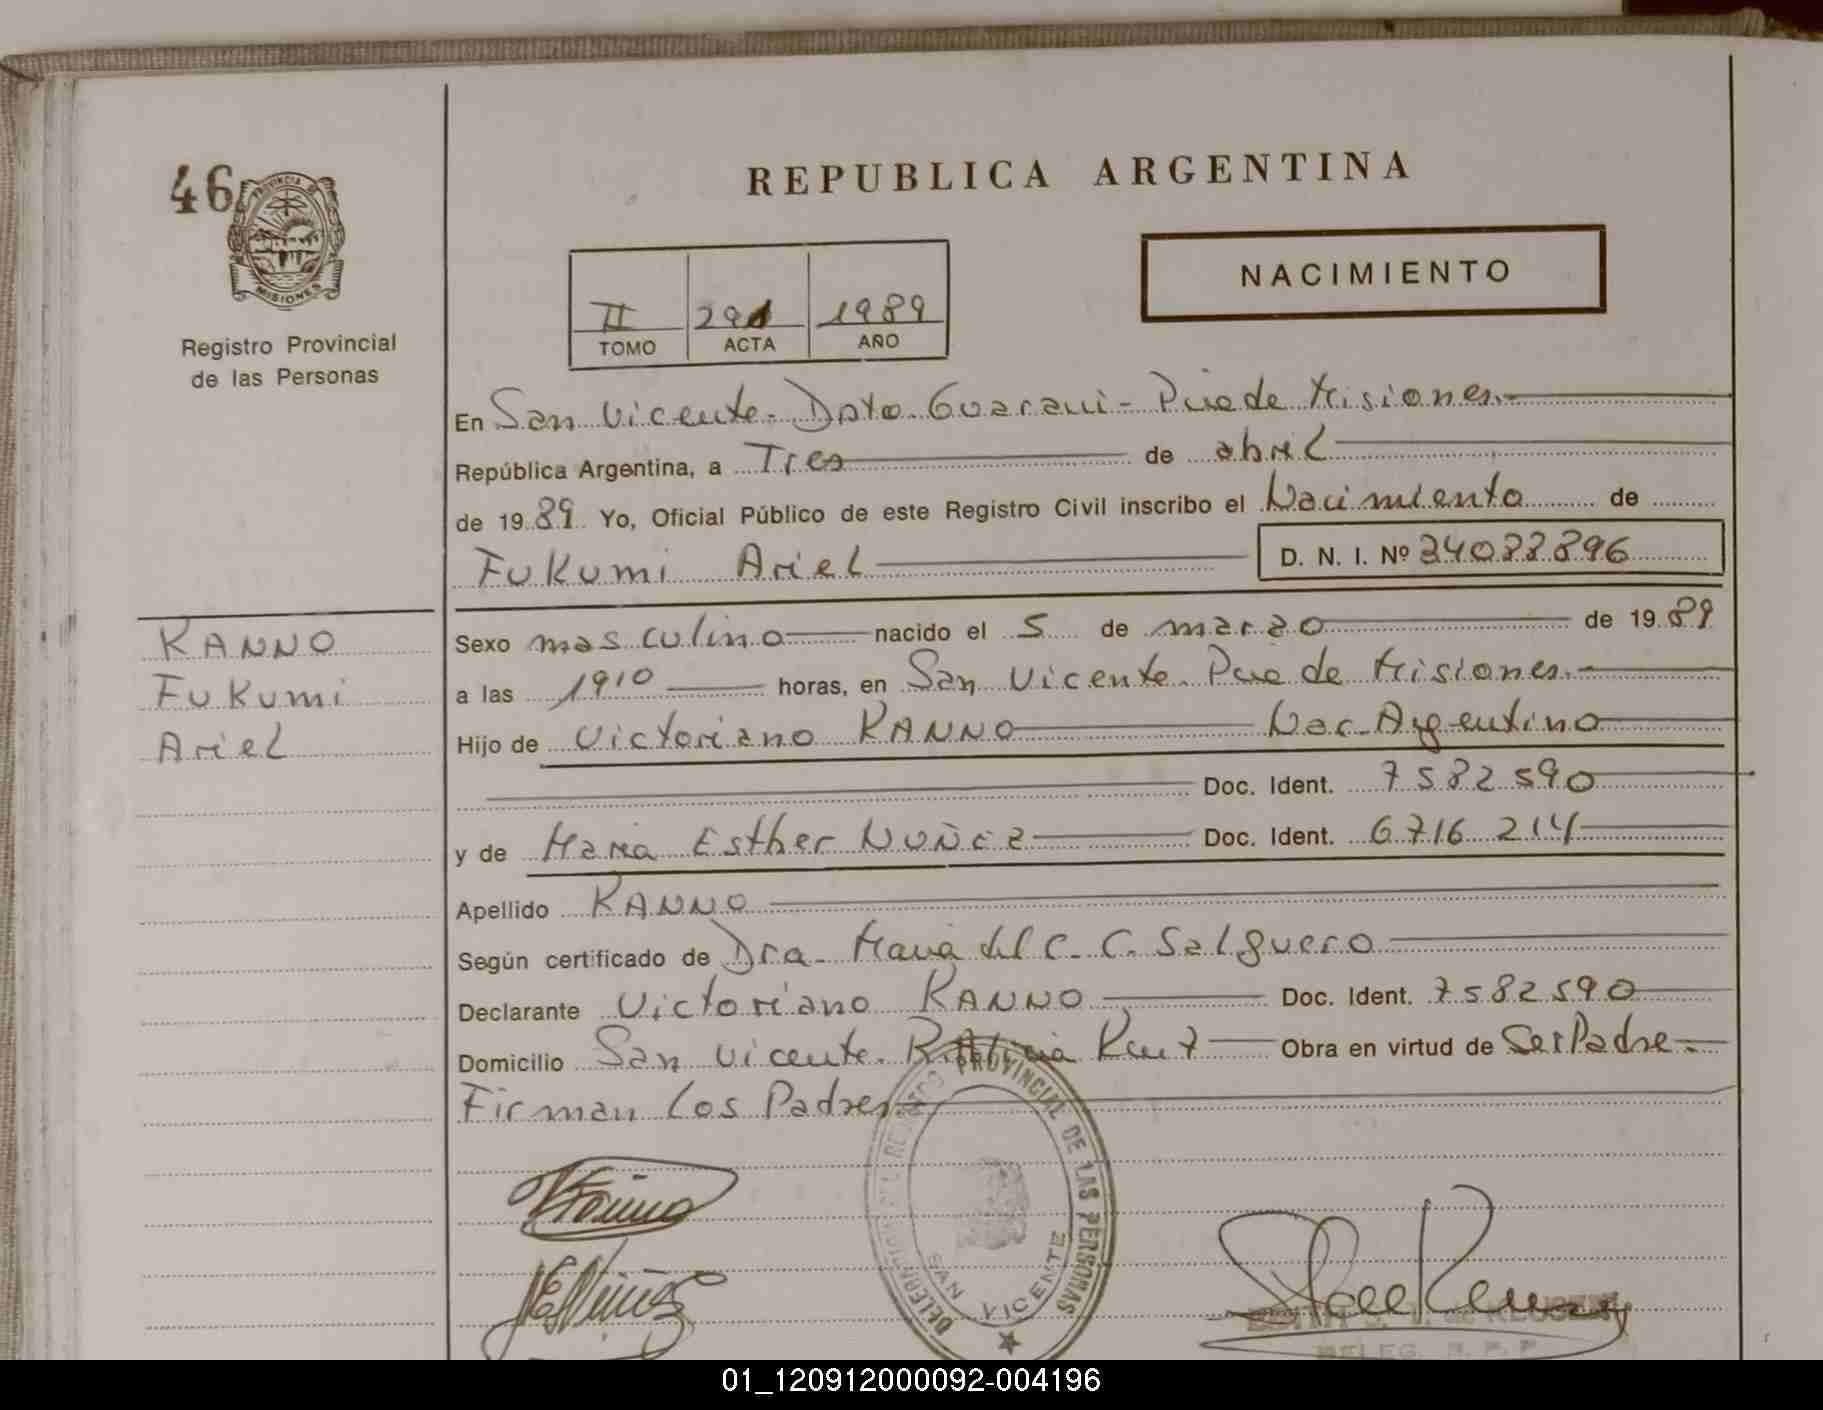 46
PROVINCIA DE
MISIONES
Registro Provincial
de las Personas
REPUBLICA ARGENTINA
NACIMIENTO
II 291 1989
TOMO ACTA AÑO
En San Vicente - Dpto. Guarani - Pcia de Misiones.
República Argentina, a Tres de abril
de 1989 Yo, Oficial Público de este Registro Civil inscribo el Nacimiento de
Fukumi Ariel D. N. I. Nº 34088896
KANNO
Fukumi
Ariel
Sexo masculino nacido el 5 de marzo de 1989
a las 1910 horas, en San Vicente. Pcia de Misiones.
Hijo de Victoriano KANNO Nac. Argentino
Doc. Ident. 7582590
y de Maria Esther NUÑEZ Doc. Ident. 6716214
Apellido KANNO
Según certificado de Dra. Maria del C. C. Salguero
Declarante Victoriano KANNO Doc. Ident. 7582590
Domicilio San Vicente. Obra en virtud de Ser Padre.
Firman Los Padres
PROVINCIAL DE LAS PERSONAS
SAN VICENTE
01_120912000092-004196